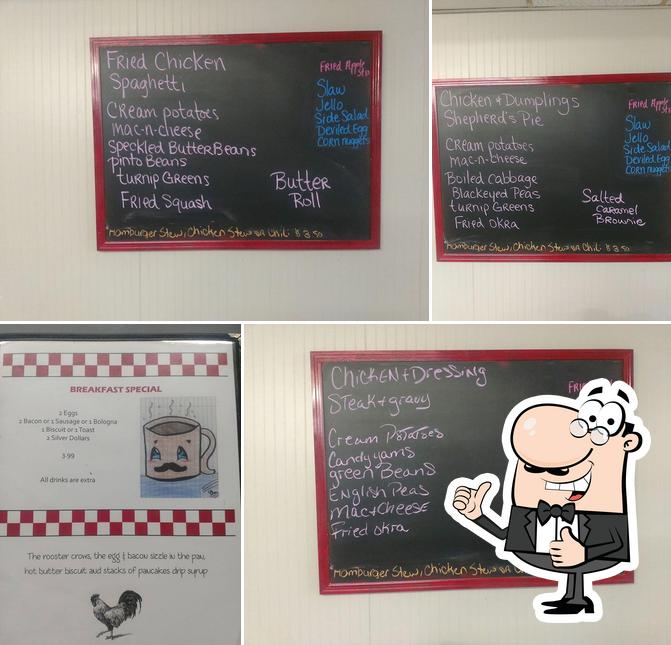 Fried Chicken
Spaghetti
Cream potatoes
Mac-n-cheese
Speckled Butter Beans
pinto Beans
turnip Greens
Fried Squash
Fried Apple
Slaw
Jello
Side Salad
Deviled Egg
Corn nuggets
Butter
Roll
Hamburger Stew, Chicken Stew or Chili $3.50
Chicken & Dumplings
Shepherd's Pie
Cream potatoes
Mac-n-cheese
Boiled Cabbage
Blackeyed Peas
turnip Greens
Fried Okra
Fried Apple
Slaw
Jello
Side Salad
Deviled Egg
Corn nuggets
Salted
Caramel
Brownie
Hamburger Stew, Chicken Stew or Chili $3.50
BREAKFAST SPECIAL
2 Eggs
2 Bacon or 1 Sausage or 1 Bologna
1 Biscuit or 1 Toast
2 Silver Dollars
3.99
All drinks are extra
The rooster crows, the egg & bacon sizzle in the pan,
hot butter biscuit and stacks of pancakes drip syrup
Chicken + Dressing
Steak + gravy
Cream Potatoes
Candy yams
green Beans
English Peas
Mac + Cheese
Fried okra
Hamburger Stew, Chicken Stew or